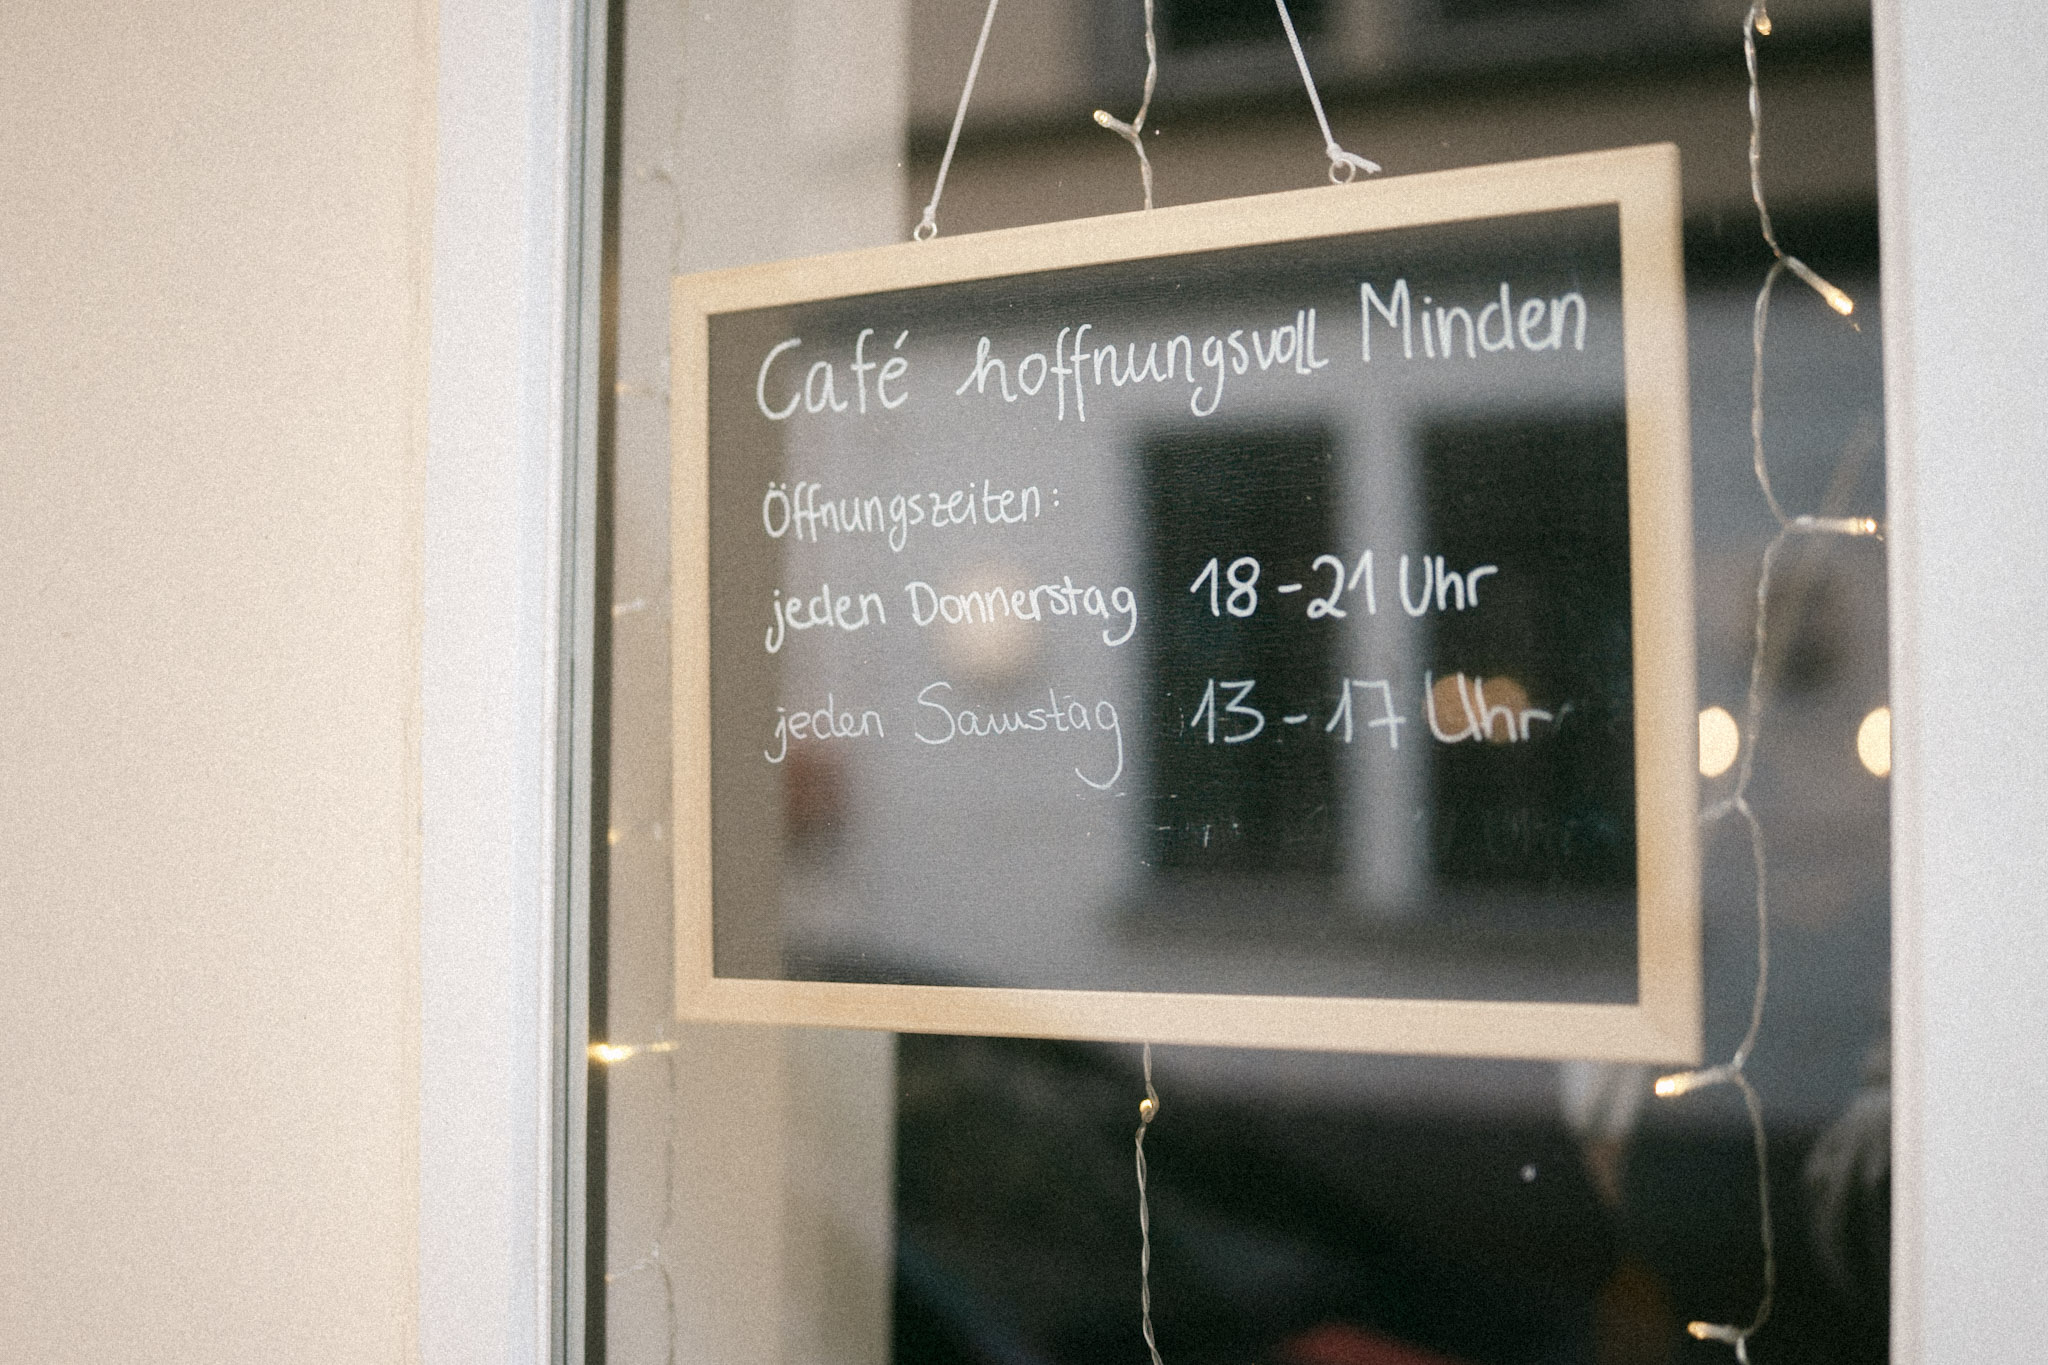 Café hoffnungsvoll Minden
Öffnungszeiten:
jeden Donnerstag 18-21 Uhr
jeden Samstag 13-17 Uhr